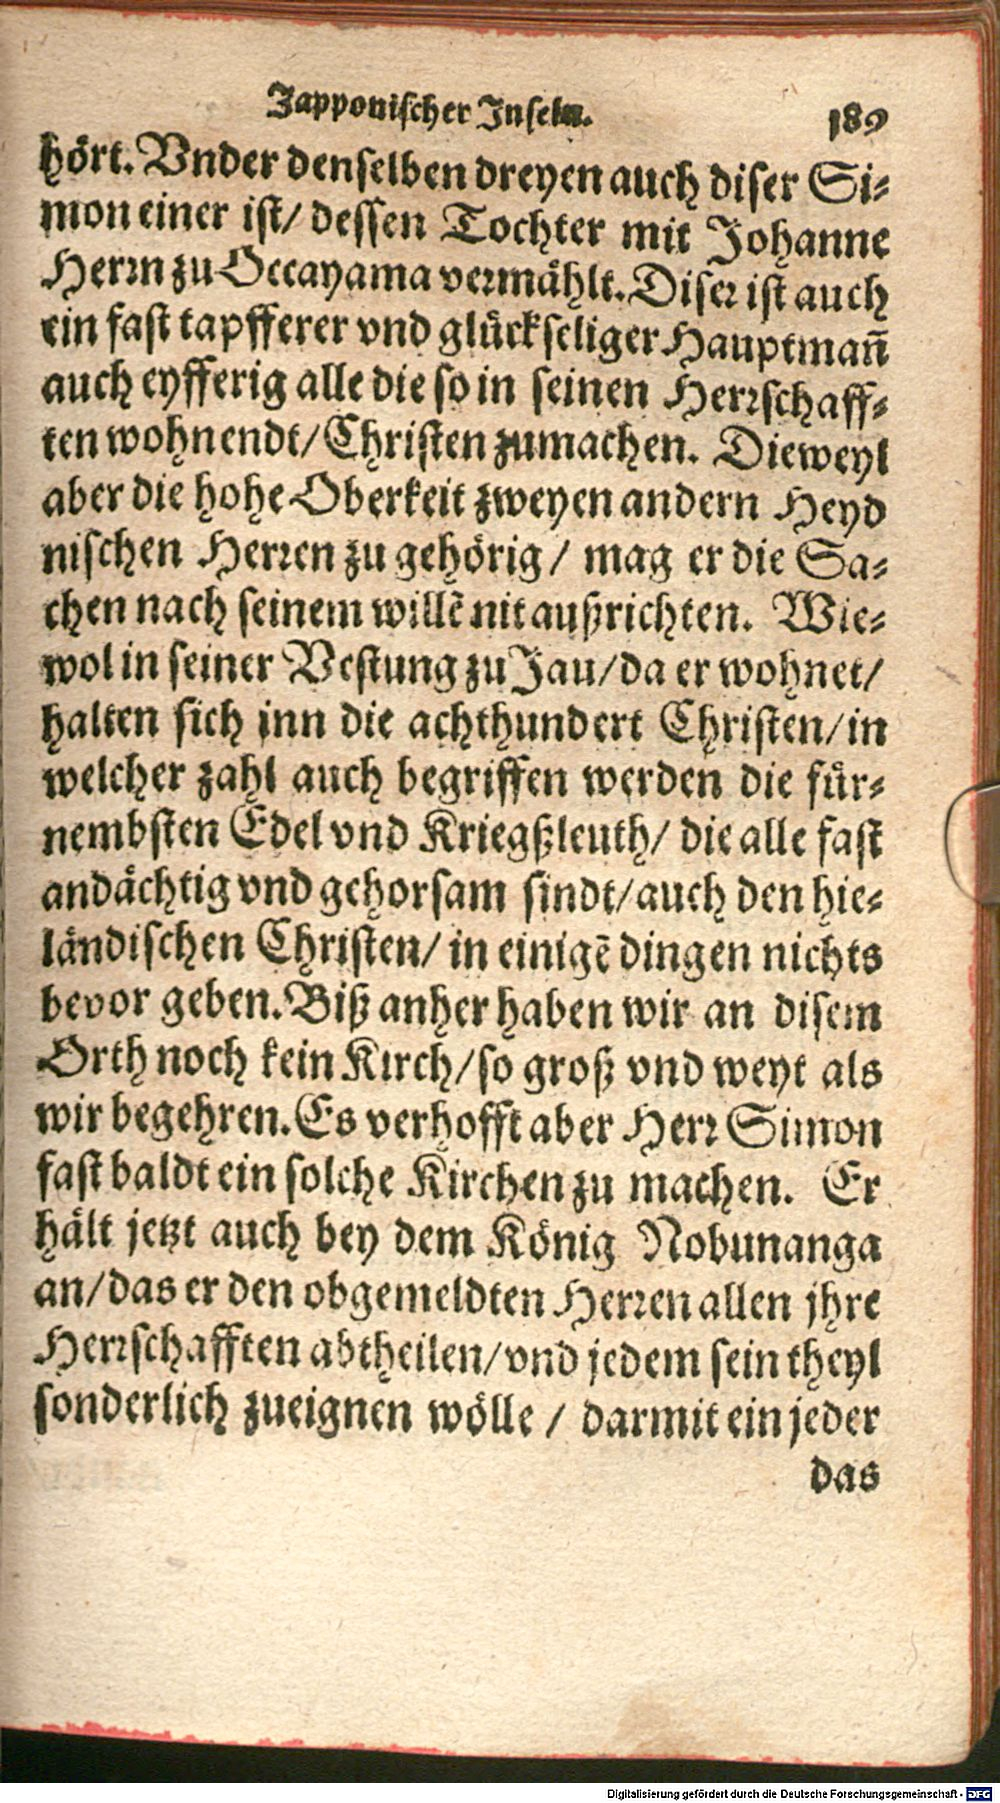 Japponischer Inseln. 189
hört. Vnder denselben dreyen auch diser Si-
mon einer ist/ dessen Tochter mit Johanne
Herrn zu Occayama vermählt. Diser ist auch
ein fast tapfferer vnd glückseliger Hauptmañ
auch eyfferig alle die so in seinen Herrschaff-
ten wohnendt/ Christen zumachen. Dieweyl
aber die hohe Oberkeit zweyen andern Heyd
nischen Herren zu gehörig/ mag er die Sa-
chen nach seinem willẽ nit außrichten. Wie-
wol in seiner Vestung zu Jau/ da er wohnet/
halten sich inn die achthundert Christen/ in
welcher zahl auch begriffen werden die für-
nembsten Edel vnd Kriegßleuth/ die alle fast
andächtig vnd gehorsam sindt/ auch den hie-
ländischen Christen/ in einigẽ dingen nichts
bevor geben. Biß anher haben wir an disem
Orth noch kein Kirch/ so groß vnd weyt als
wir begehren. Es verhofft aber Herr Simon
fast baldt ein solche Kirchen zu machen. Er
hält jetzt auch bey dem König Nobunanga
an/ das er den obgemeldten Herren allen jhre
Herrschafften abtheilen/ vnd jedem sein theyl
sonderlich zueignen wölle / darmit ein jeder
das
Digitalisierung gefördert durch die Deutsche Forschungsgemeinschaft - DFG